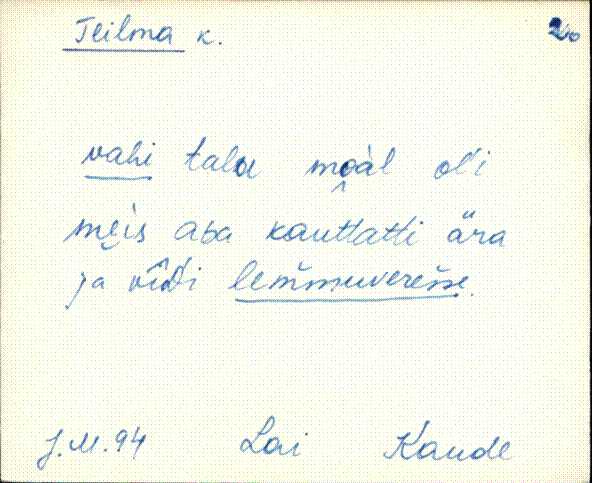 Teilma k.
200
vahi talu moàl ol'i
meìs aba kauttatti ära
ja vîdi lem̆muverešse.
J.M.94 Lai Kaude